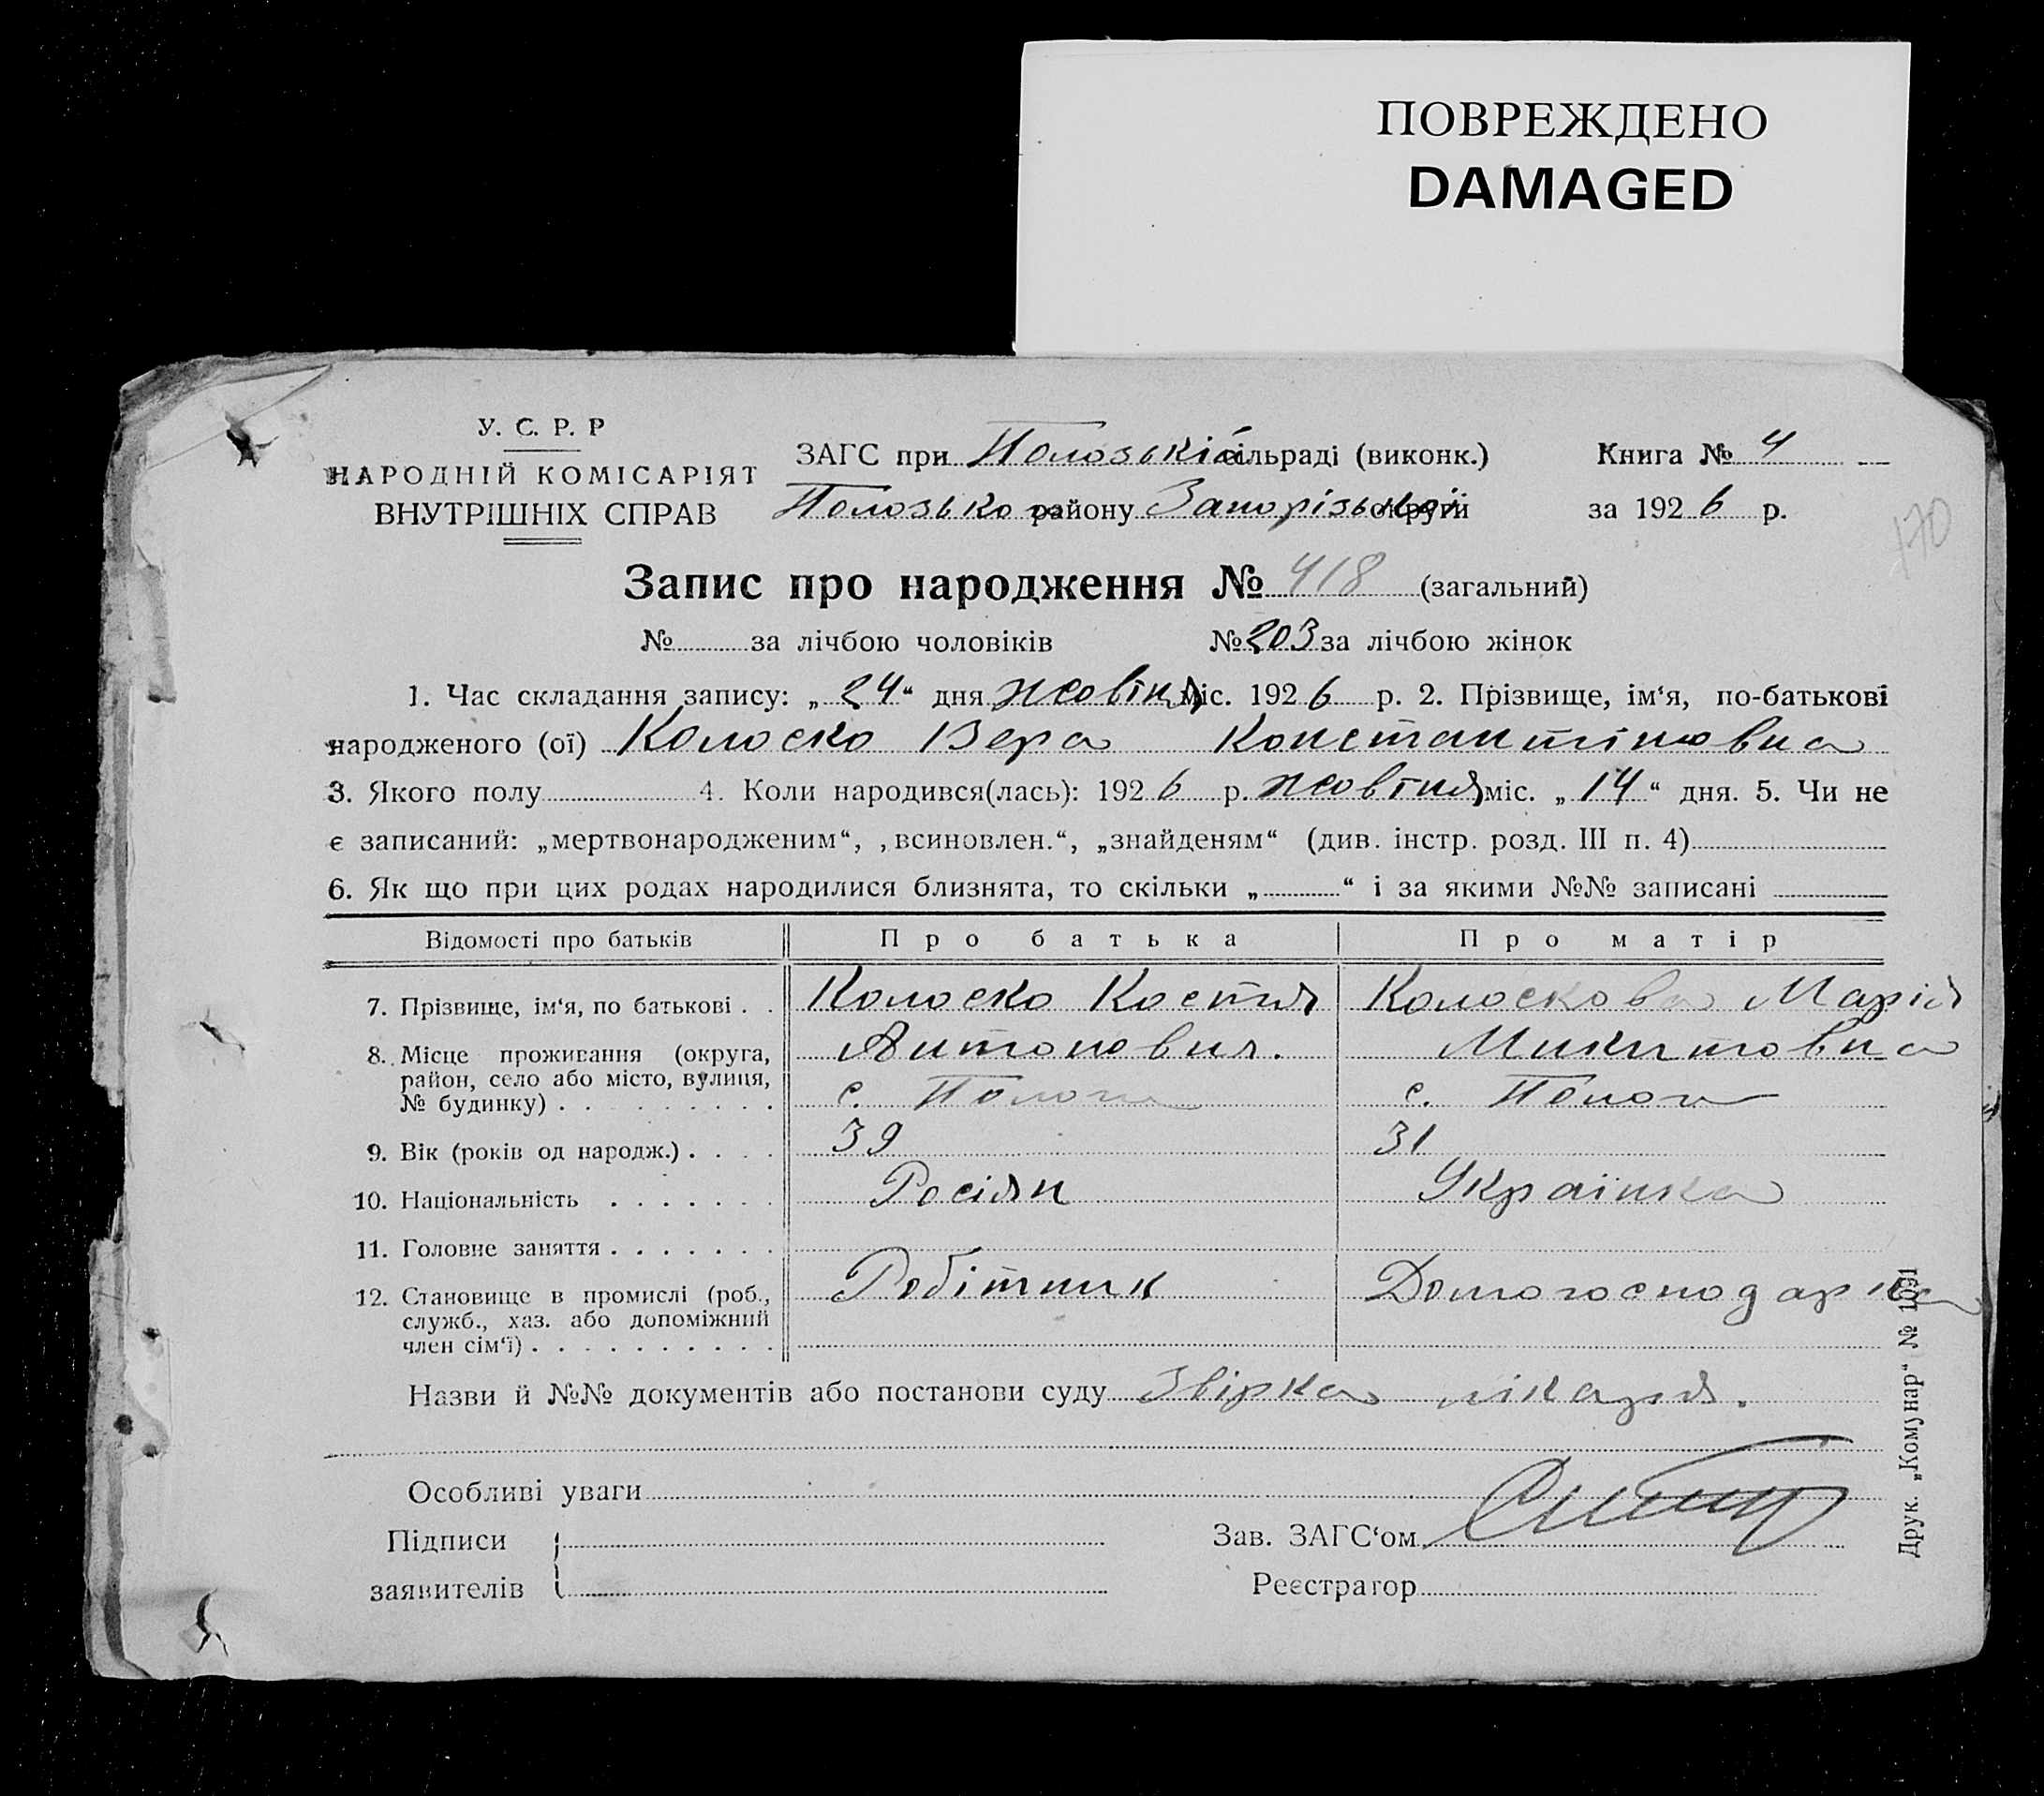 ПОВРЕЖДЕНО
DAMAGED
У. С. Р. Р
НАРОДНІЙ КОМІСАРІЯТ
ВНУТРІШНІХ СПРАВ
ЗАГС при Полозькій сільраді (виконк.)
Полозького району Запорізької округи
Книга № 4
за 1926 р.
170
Запис про народження № 418 (загальний)
№ за лічбою чоловіків № 203 за лічбою жінок
1. Час складання запису: „24“ дня жовтня міс. 1926 р. 2. Прізвище, ім‘я, по-батькові
народженого (ої) Колоско Вера Константіновна
3. Якого полу 4. Коли народився(лась): 1926 р. жовтня міс. „14“ дня. 5. Чи не
є записаний: „мертвонародженим“, „всиновлен.“, „знайденям“ (див. інстр. розд. III п. 4)
6. Як що при цих родах народилися близнята, то скільки „ “ і за якими №№ записані
Відомості про батьків Про батька Про матір
7. Прізвище, ім‘я, по батькові . . Колоско Костя Колоскова Марія
8. Місце проживання (округа, Антонович. Микитовна
район, село або місто, вулиця,
№ будинку) . . . . . . . . . с. Пологи с. Пологи
9. Вік (років од народж.) . . . . 39 31
10. Національність . . . . . . . Росіян Українка
11. Головне заняття . . . . . . .
12. Становище в промислі (роб., Робітник Домогосподарка
служб., хаз. або допоміжний
член сім‘ї) . . . . . . . . . .
Назви й №№ документів або постанови суду Звірка лікаря.
Особливі уваги
Підписи
заявителів
Зав. ЗАГС‘ом
Реєстратор
Друк. „Комунар“ № 1091